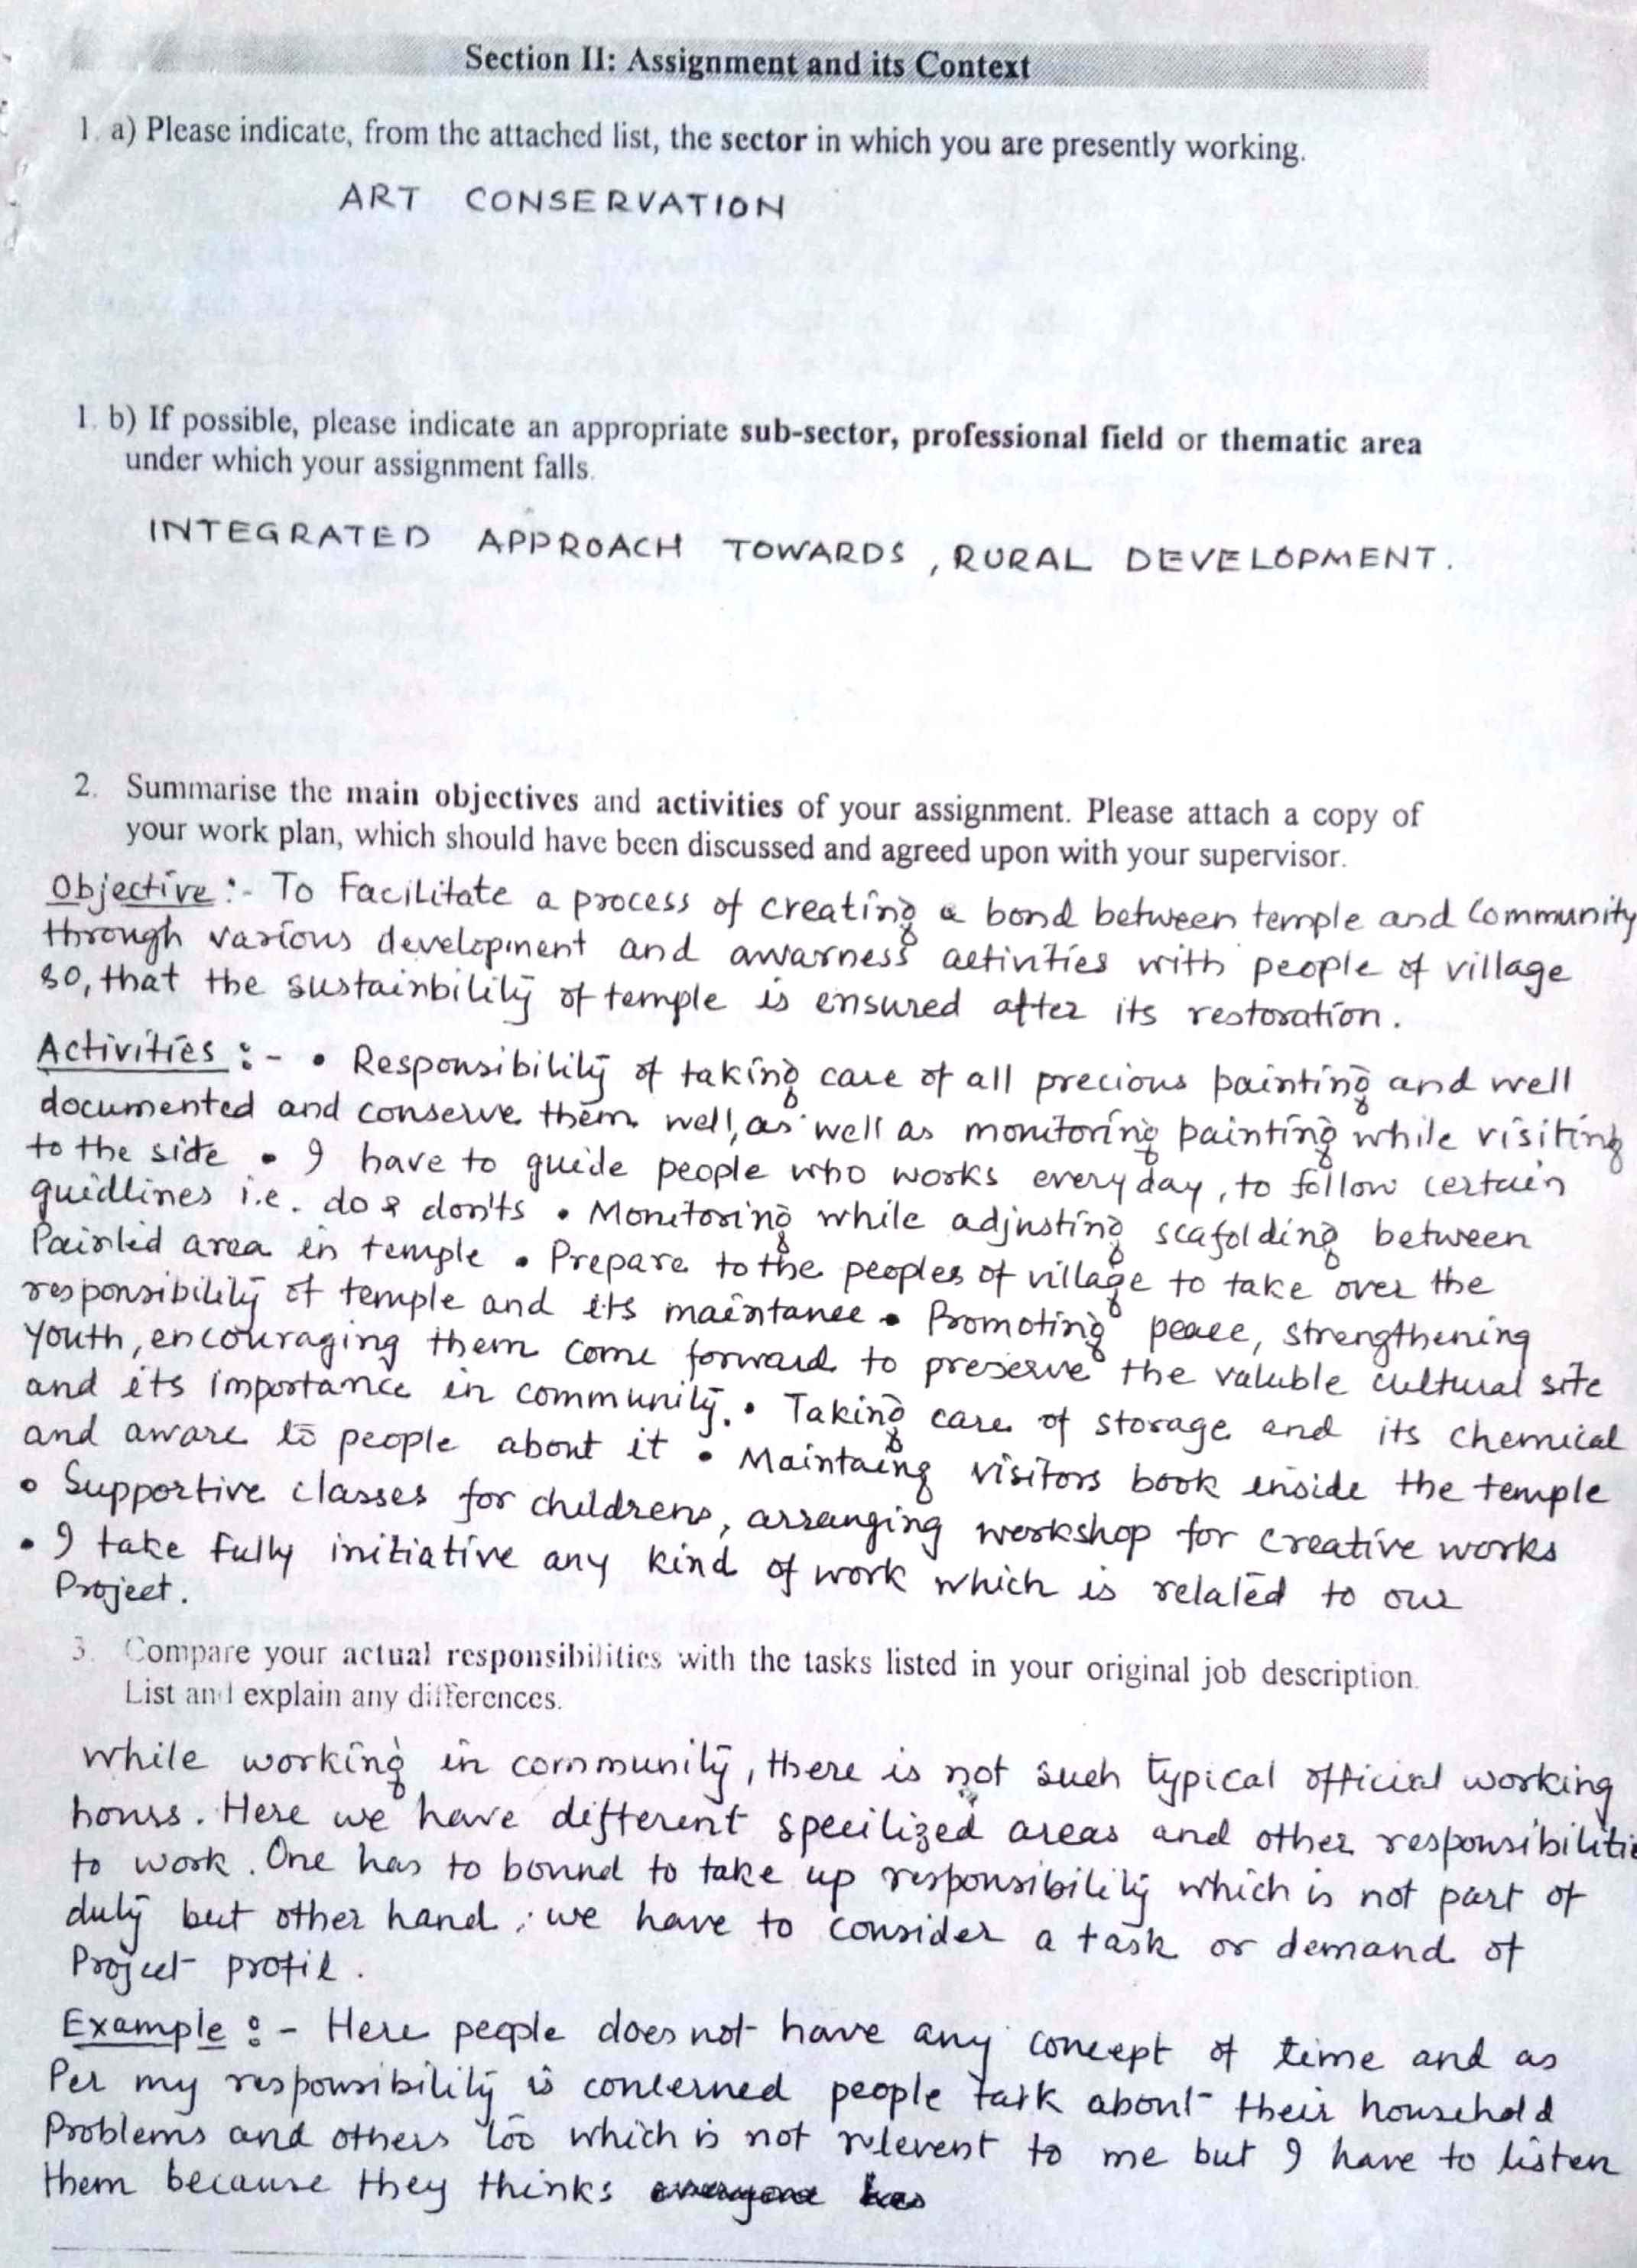 Section II: Assignment and its Context
1. a) Please indicate, from the attached list, the sector in which you are presently working.
ART CONSERVATION
1. b) If possible, please indicate an appropriate sub-sector, professional field or thematic area
under which your assignment falls.
INTEGRATED APPROACH TOWARDS , RURAL DEVELOPMENT.
2. Summarise the main objectives and activities of your assignment. Please attach a copy of
your work plan, which should have been discussed and agreed upon with your supervisor.
Objective :- To Facilitate a process of creating a bond between temple and Community
through various development and awarness activities with people of village
so, that the sustainbility of temple is ensured after its restoration.
Activities :- • Responsibility of taking care of all precious painting and well
documented and conserve them well, as well as monitoring painting while visiting
to the side • I have to guide people who works everyday, to follow certain
guidlines i.e. do & don'ts • Monitoring while adjusting scafolding between
Painted area in temple • Prepare to the peoples of village to take over the
responsibility of temple and its maintance • Promoting peace, strengthening
Youth, encouraging them come forward to preserve the valuble cultural site
and its importance in community. • Taking care of storage and its chemical
and aware to people about it • Maintaing visitors book inside the temple
• Supportive classes for childrens, arranging workshop for creative works
• I take fully initiative any kind of work which is related to our
Project.
3. Compare your actual responsibilities with the tasks listed in your original job description.
List and explain any differences.
while working in community, there is not such typical official working
hours. Here we have different specilized areas and other responsibilitie
to work. One has to bound to take up responsibility which is not part of
duty but other hand ; we have to consider a task or demand of
Project profil.
Example :- Here people does not have any concept of time and as
Per my responsibility is concerned people talk about their household
Problems and others too which is not relevent to me but I have to listen
them because they thinks